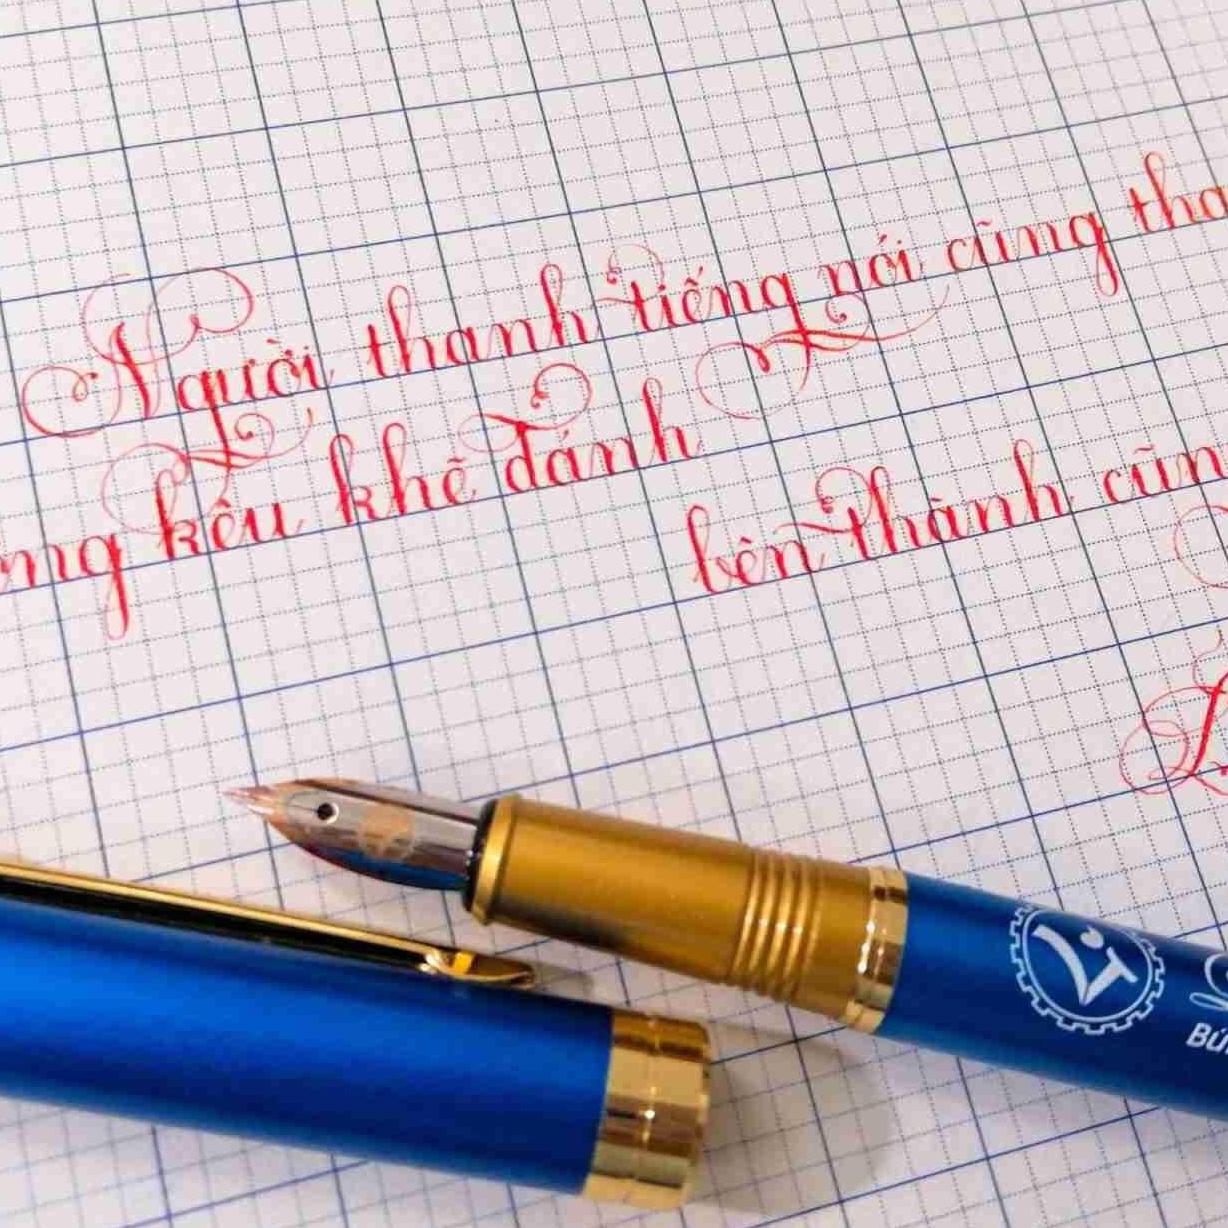 Người thanh tiếng nói cũng tha
ng kêu khẽ đánh bên thành cũn
L
BÚ